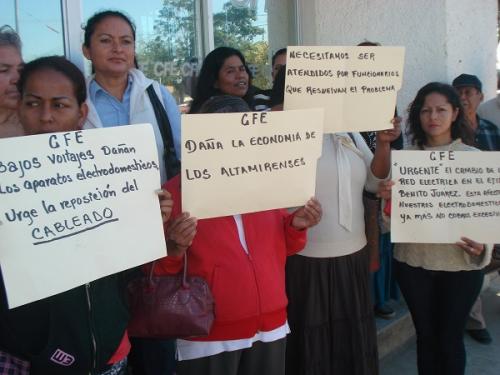 CFE
Bajos Voltajes Dañan
Los aparatos electrodomesticos,
Urge la reposición del
CABLEADO
CFE
DAÑA LA ECONOMIA DE
LOS ALTAMIRENSES
NECESITAMOS SER
ATENDIDOS POR FUNCIONARIOS
QUE RESUELVAN EL PROBLEMA
CFE
"URGENTE" EL CAMBIO DE L
RED ELECTRICA EN EL EJI
BENITO JUAREZ. ESTA AFEC
NUESTROS ELECTRODOMESTIC
YA MAS NO COBROS EXCESI